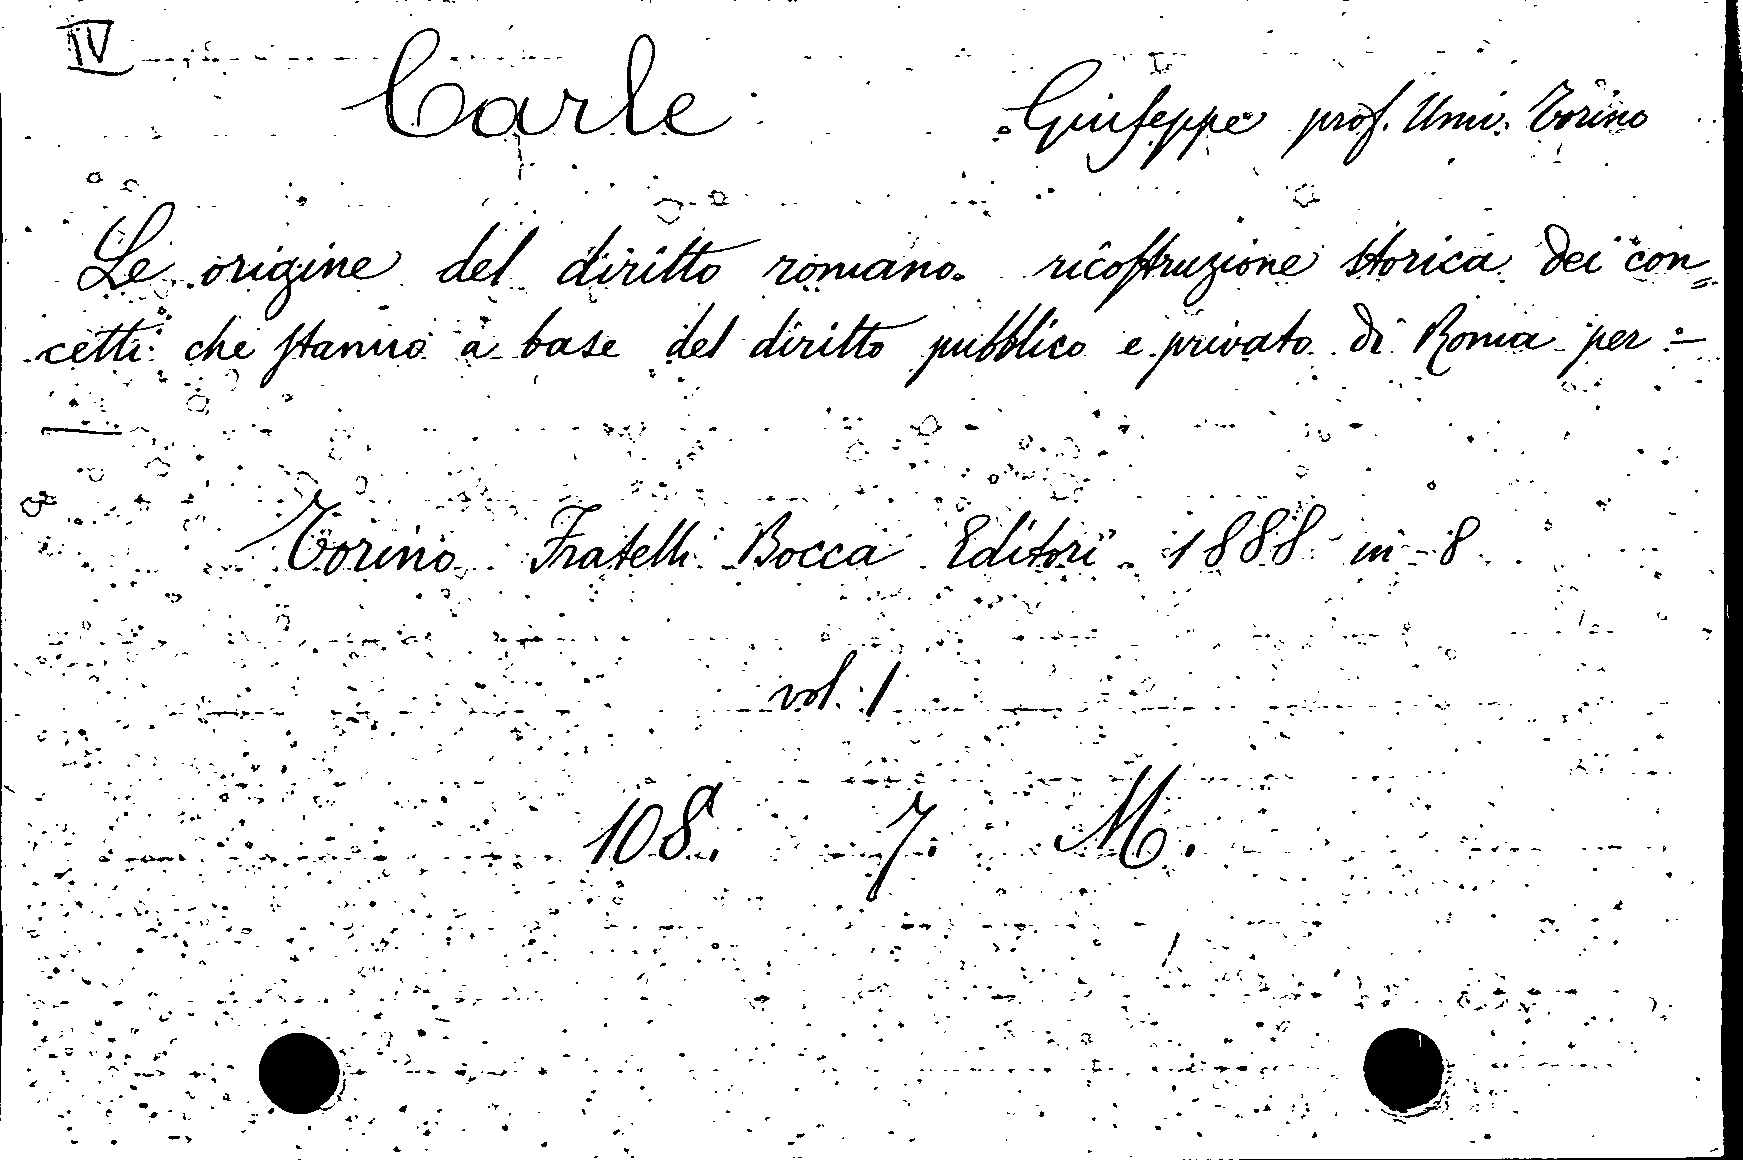 IV
Carle Giuseppe prof. Univ. Torino
Le origine del diritto romano. ricostruzione storica dei con=
cetti che stanno a base del diritto pubblico e privato di Roma per :-
Torino Fratelli Bocca Editori 1888 in 8
vol. 1
108. 7. M.